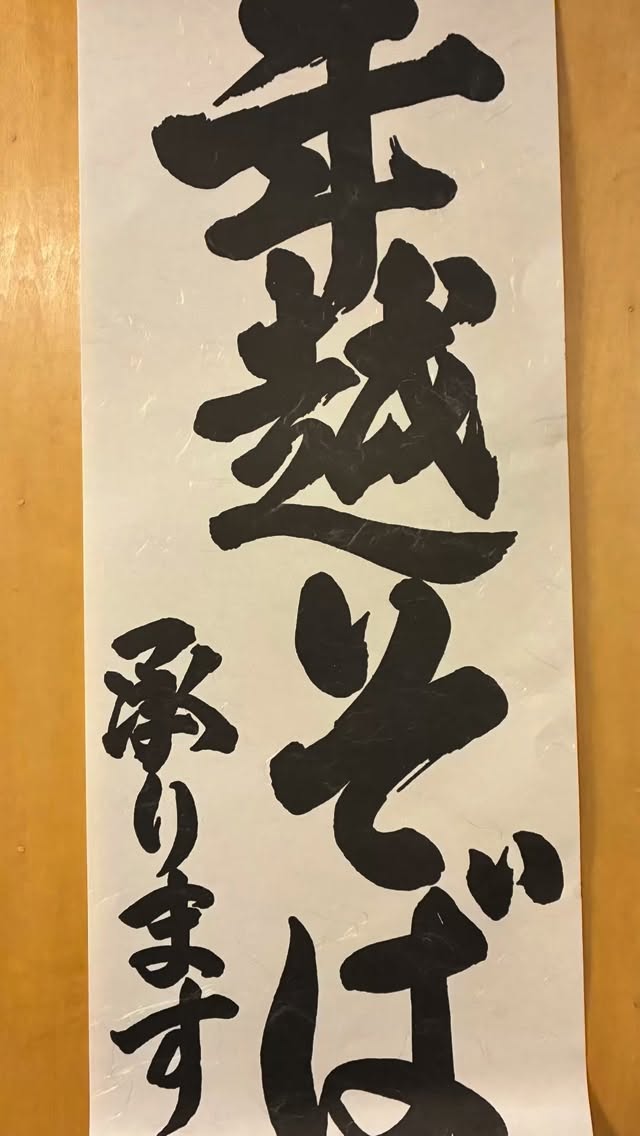 年越そば
承ります